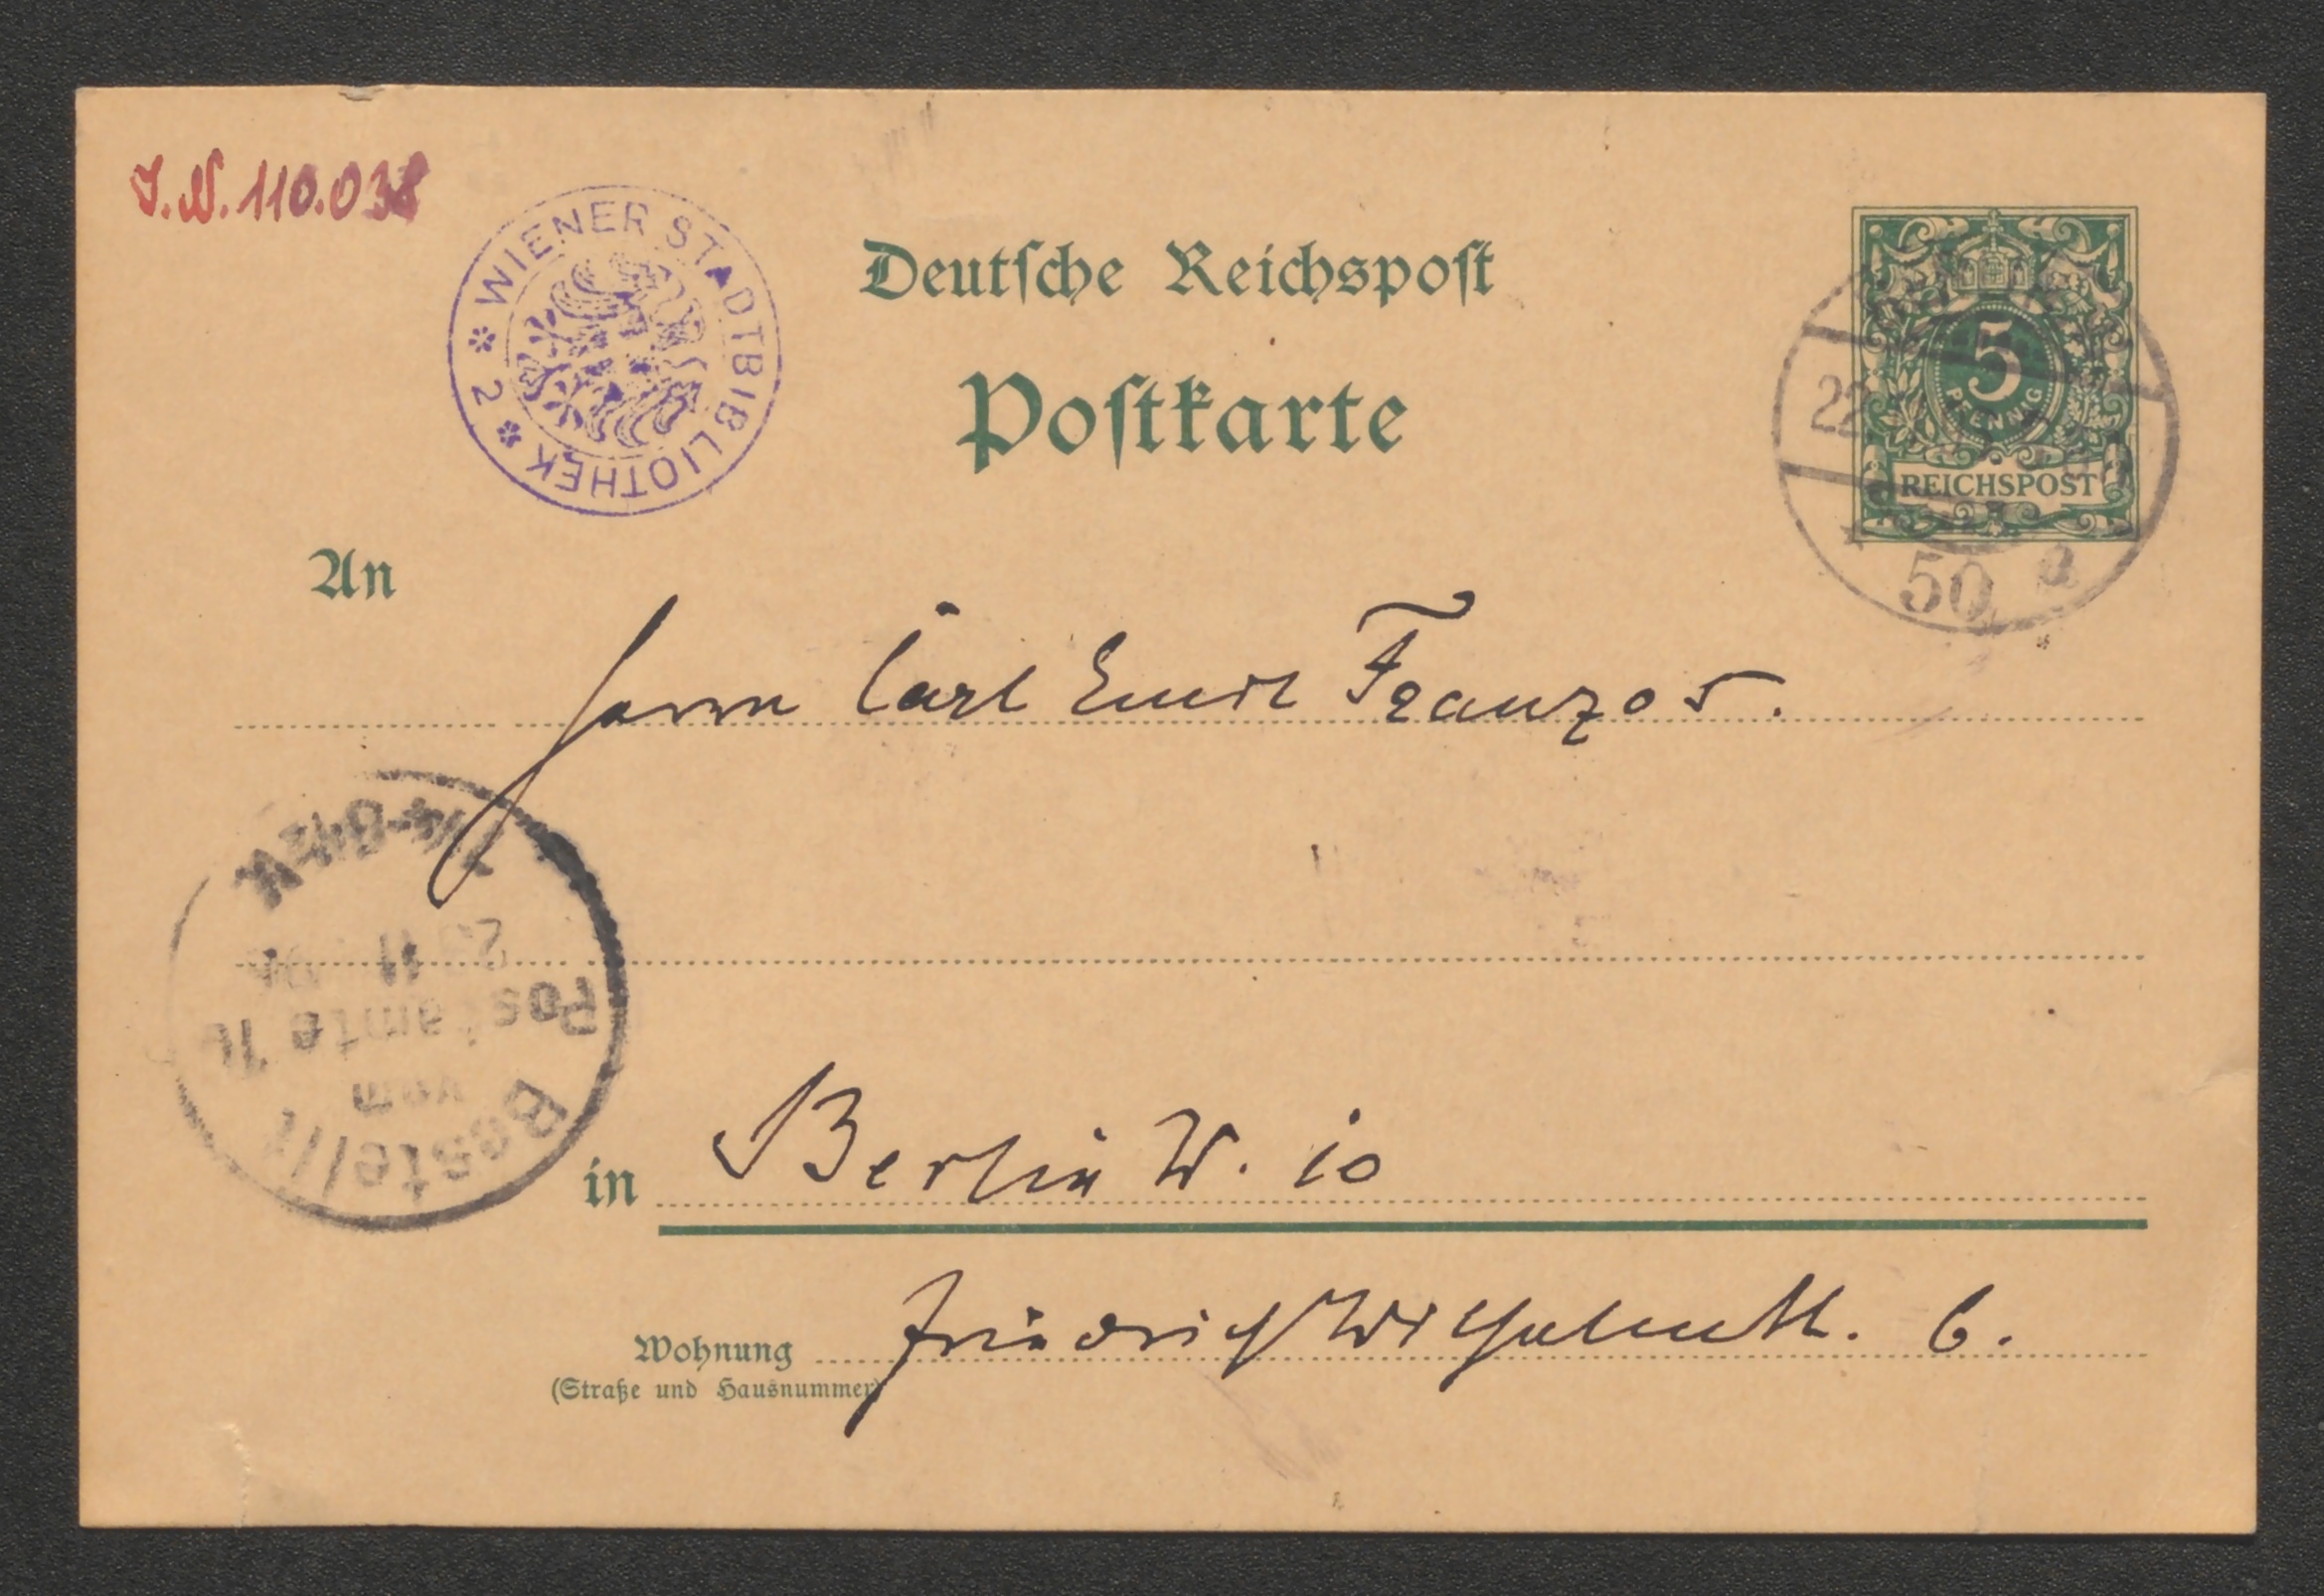 J.N. 110.038
* WIENER STADTBIBLIOTHEK * 2
Deutsche Reichspost
Postkarte
5
PFENNIG
REICHSPOST
22
50 a
An
Herrn Carl Emil Franzos.
Bestellt
vom
Postamte
11
in Berlin W. 10
Wohnung Friedrich Wilhelmstr. 6.
(Straße und Hausnummer)